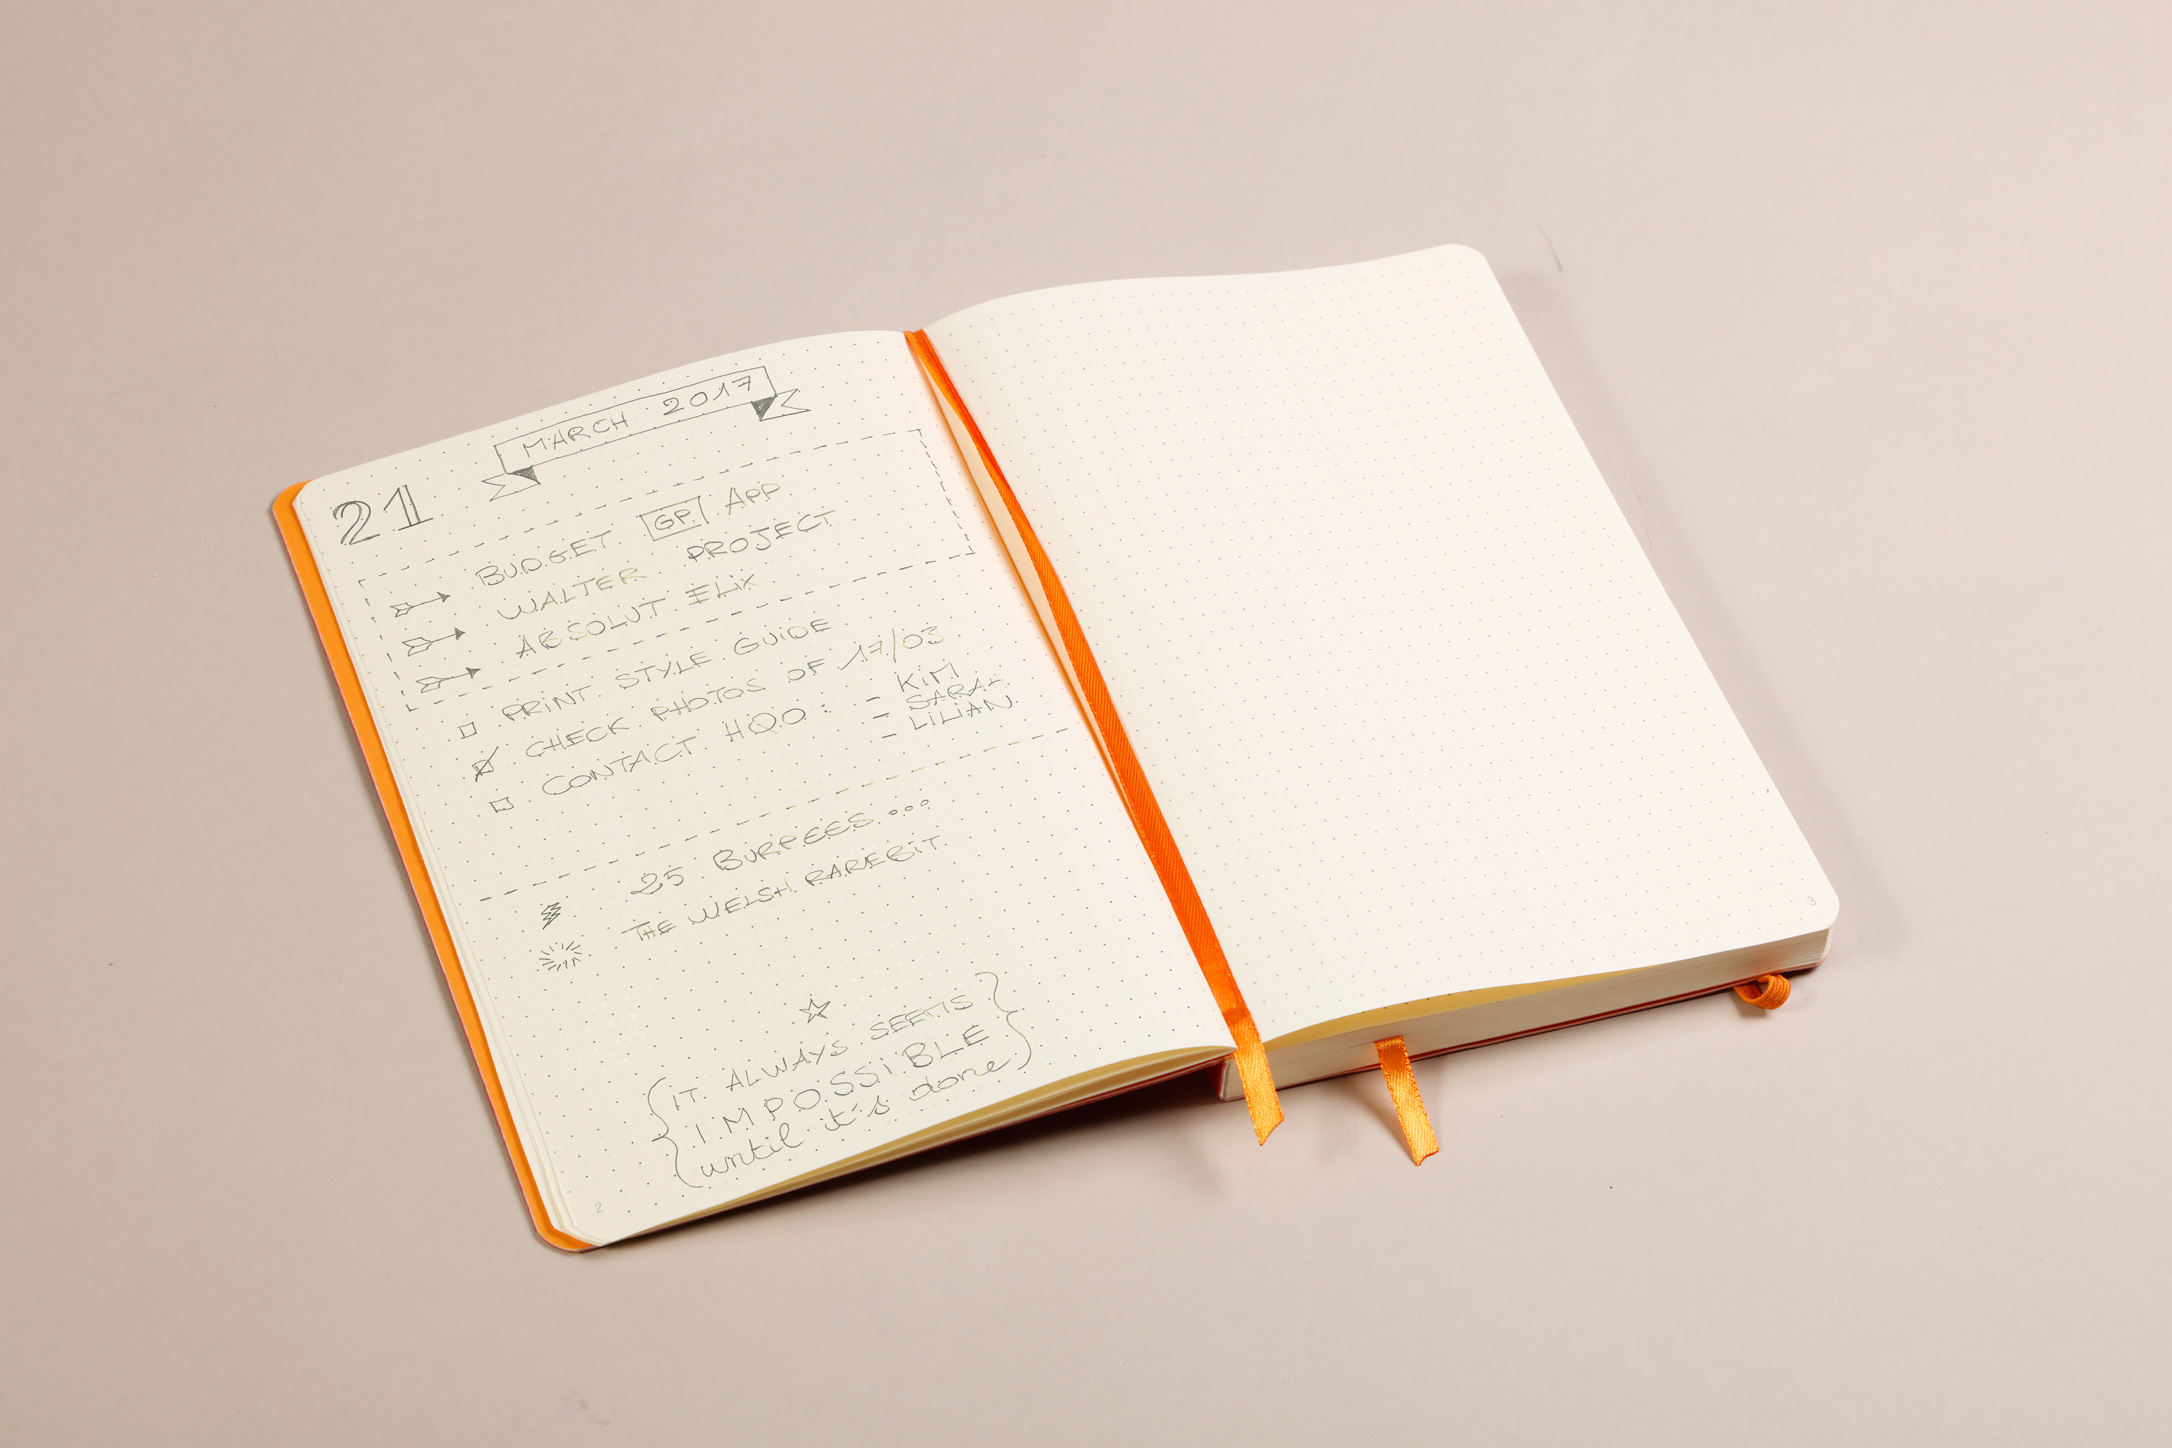 MARCH 2017
21
BUDGET GP APP
WALTER PROJECT
ABSOLUT ELIX
PRINT STYLE GUIDE
CHECK PHOTOS OF 17/03
CONTACT HQO : - KIM
- SARAH
- LILIAN
25 BURPEES...
THE WELSH RAREBIT
IT ALWAYS SEEMS
IMPOSSIBLE
until it's done
2
3